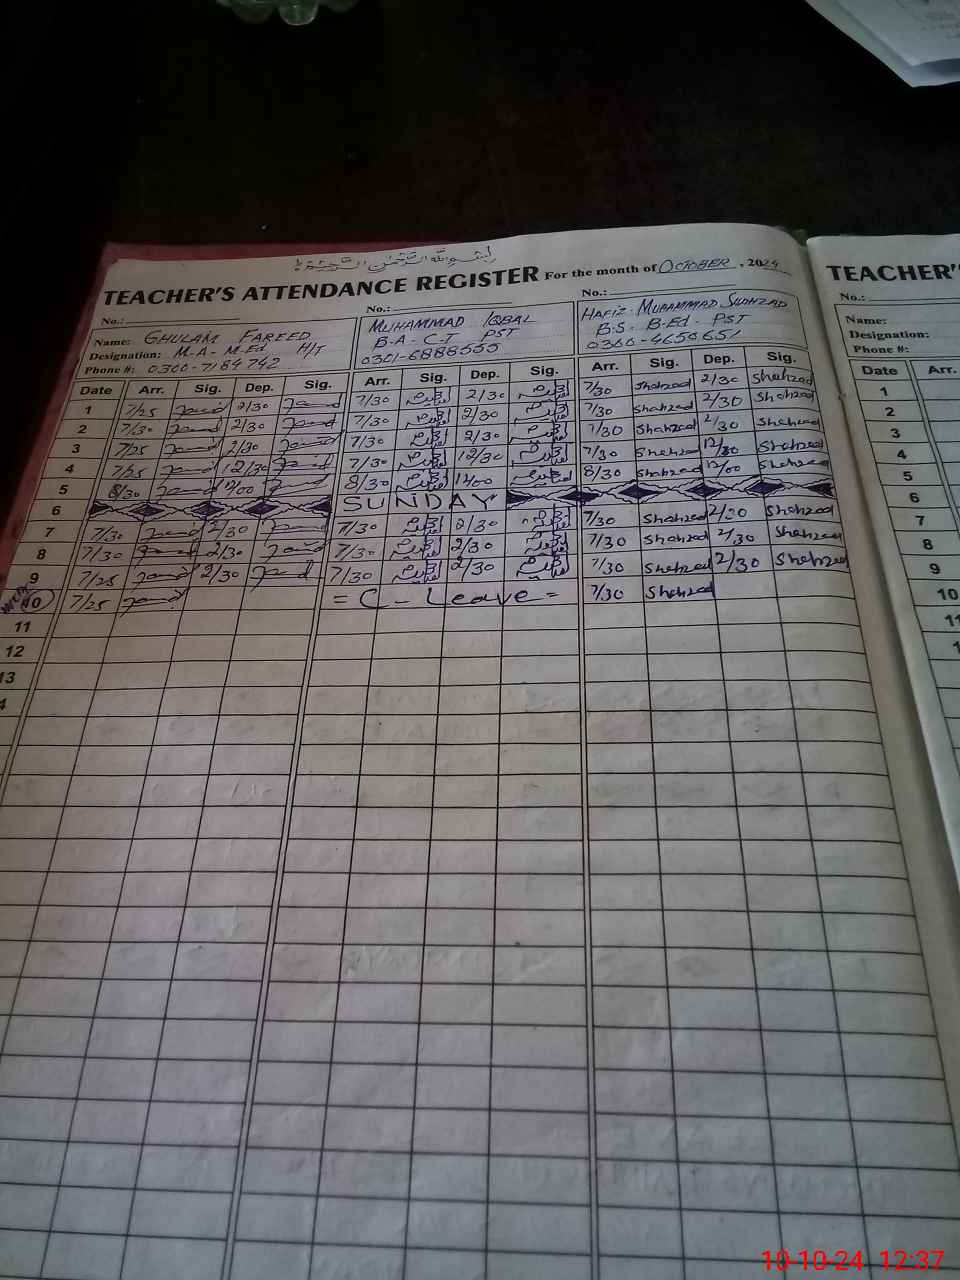 بسم الله الرحمن الرحيم
TEACHER'S ATTENDANCE REGISTER For the month of OCTOBER, 2024
No.: No.: No.:
Name: GHULAM FAREED MUHAMMAD IQBAL HAFIZ. MUHAMMAD SHAHZAD
Designation: M-A- M-Ed H/T B-A- C.T PST B.S. B-Ed- PST
Phone #: 0300-7184742 0301-6888555 0300-4650651
Date Arr. Sig. Dep. Sig. Arr. Sig. Dep. Sig. Arr. Sig. Dep. Sig.
1 7/25 2/30 7/30 2/30 7/30 Shahzad 2/30 Shahzad
2 7/30 2/30 7/30 2/30 7/30 Shahzad 2/30 Shahzad
3 7/25 2/30 7/30 2/30 7/30 Shahzad 2/30 Shahzad
4 7/25 12/30 7/30 12/30 7/30 Shahzad 12/30 Shahzad
5 8/30 12/00 8/30 12/00 8/30 Shahzad 12/00 Shahzad
6 SUNDAY
7 7/30 2/30 7/30 2/30 7/30 Shahzad 2/30 Shahzad
8 7/30 2/30 7/30 2/30 7/30 Shahzad 2/30 Shahzad
9 7/25 2/30 7/30 2/30 7/30 Shahzad 2/30 Shahzad
10 7/25 = C - Leave = 7/30 Shahzad
11
12
13
4
TEACHER'
No.:
Name:
Designation:
Phone #:
Date Arr.
1
2
3
4
5
6
7
8
9
10
11
1
10-10-24 12:37